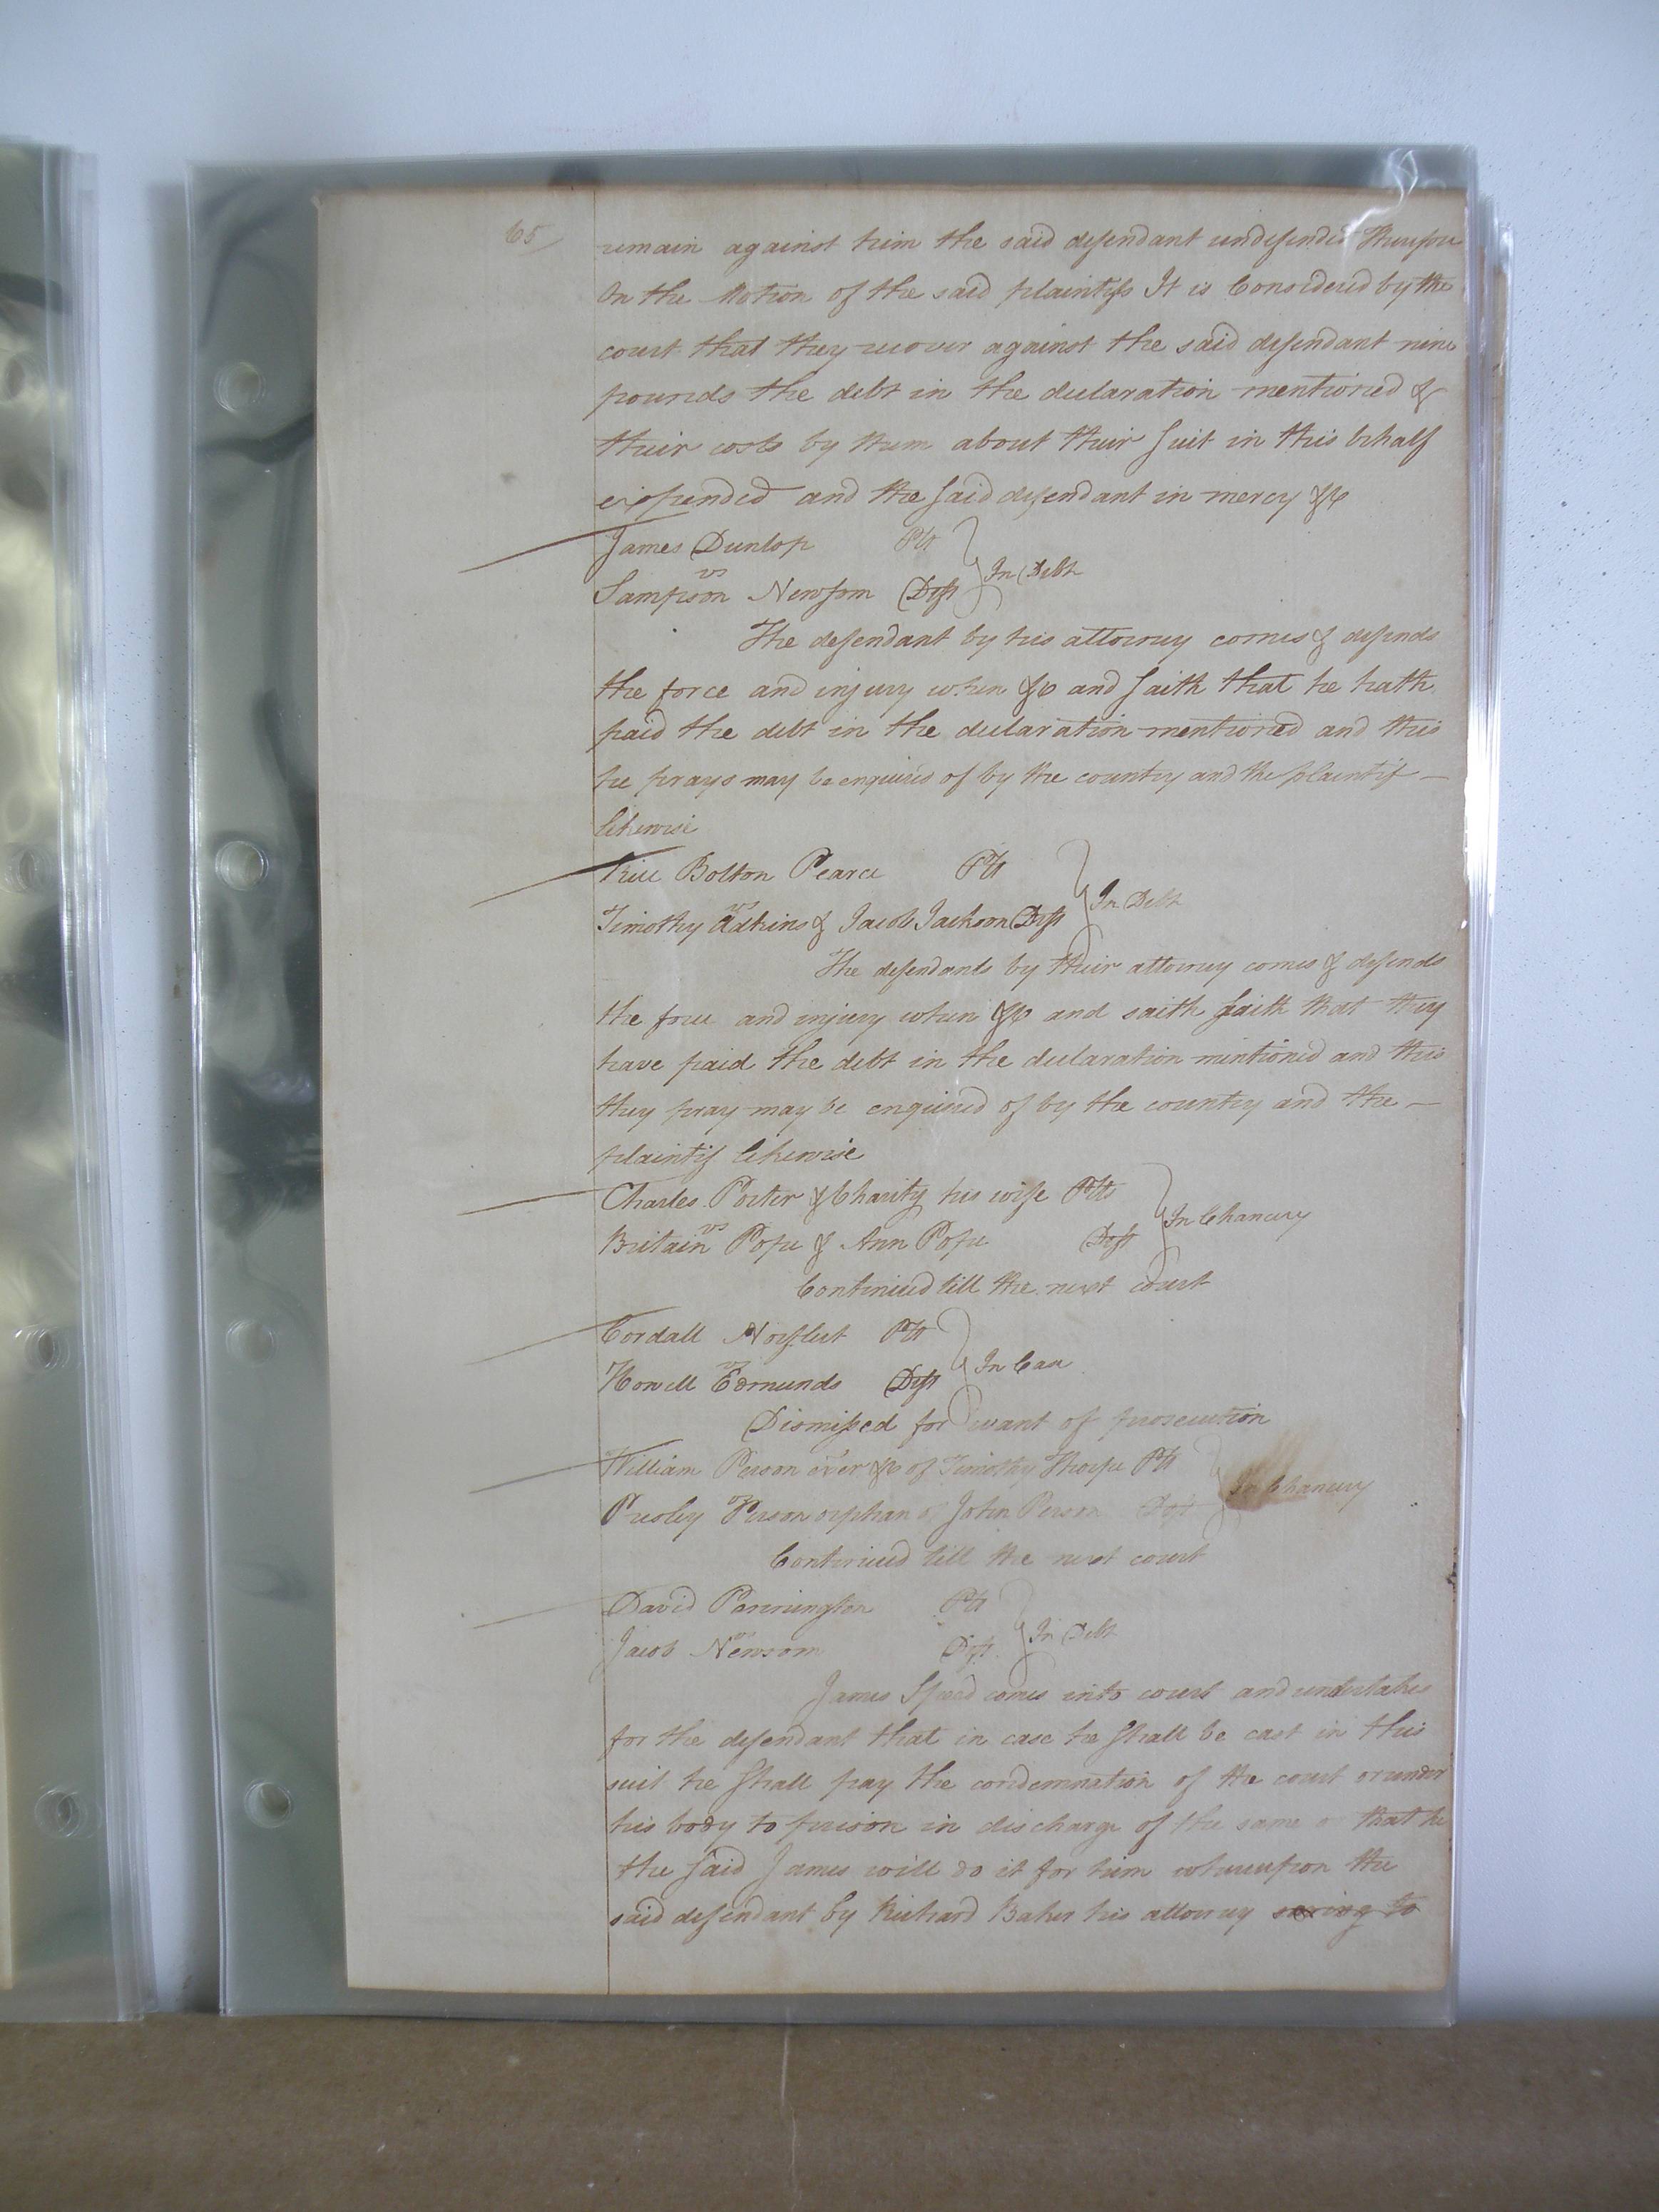 65
remain against him the said defendant undefended Therefore
On the Motion of the said plaintifs It is Considered by the
court that they recover against the said defendant nine
pounds the debt in the declaration mentioned &
their costs by them about their suit in this behalf
expended and the said defendant in mercy &c
James Dunlop Plt
vs In Debt
Sampson Newsom Deft
The defendant by his attorney comes & defends
the force and injury when &c and saith that he hath
paid the debt in the declaration mentioned and this
he prays may be enquired of by the country and the plaintif –
likewise
Rice Bolton Pearce Plt
vs In Debt
Timothy Adkins & Jacob Jackson Deft
The defendants by their attorney comes & defends
the force and injury when &c and saith saith that they
have paid the debt in the declaration mentioned and this
they pray may be enquired of by the country and the –
plaintif likewise
Charles Porter & Charity his wife Plts
vs In Chancery
Britain Pope & Ann Pope Deft
Continued till the next court
Cordall Norfleet Plt
vs In Case
Howell Edmunds Deft
Dismissed for want of prosecution
William Person exer &c of Timothy Thorpe Plt
vs In Chancery
Presley Person orphan of John Person Deft
Continued till the next court
David Pennington Plt
vs In Debt
Jacob Newsom Deft
James Speed comes into court and undertakes
for the defendant that in case he shall be cast in this
suit he shall pay the condemnation of the court or render
his body to prison in discharge of the same or that he
the said James will do it for him whereupon the
said defendant by Richard Baker his attorney saving to